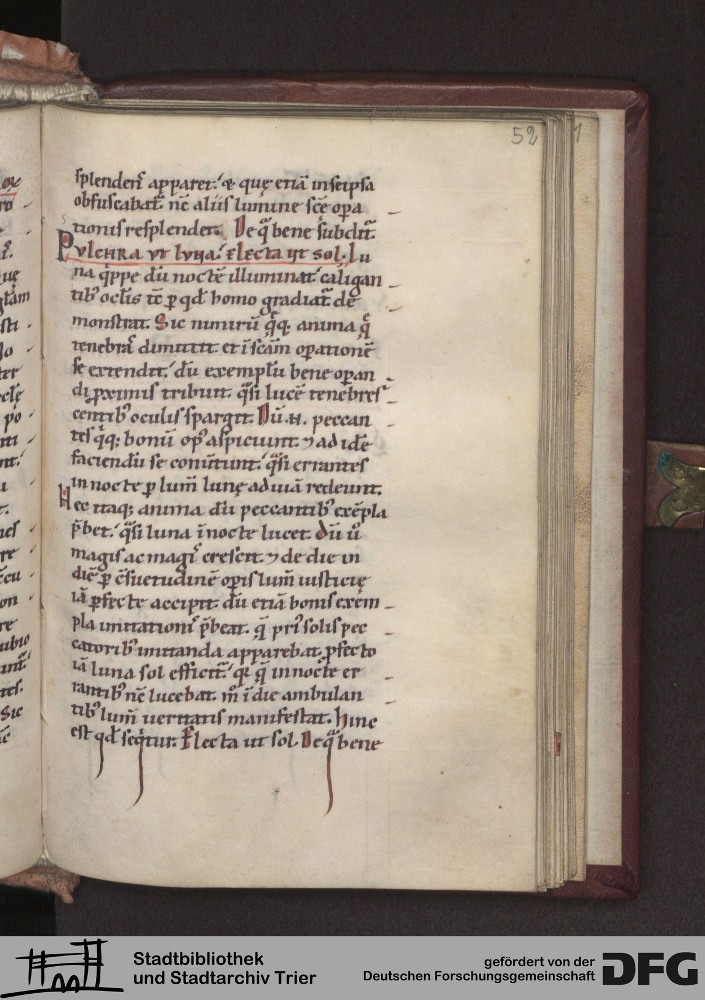 52
splendens apparet. & quę etiā inseipsa
obfuscabat̄. nc̄ aliis lumine sc̄ę opa
tionis resplendet. De q̄ bene subdit̄.
PVLCHRA VT LVNA. Electa ut sol. Lu
na q̇ppe dū noctē illuminat caligan
tib᾽ oclīs it̄ p qd̄ homo gradiat̄ de
monstrat. Sic nimirū q̄q; anima q̄
tenebras dimittit et ī scām operationē
se extendit. dū exemplū bene operan
di pximis tribuit. q̄si lucē tenebres
centib᾽ oculis spargit. Dū .N. peccan
tes q̇q; bonū op᾽ aspiciunt. ⁊ ad idē
faciendū se conūtunt. q̄si errantes
in nocte p lum̄ lunę ad uiā redeunt.
Hec itaq; anima dū peccantib᾽ exēpla
p̄bet. q̄si luna ī nocte lucet. dū u̇
magis ac magis crescit. ⁊ de die in
diē p c̄suetudinē opis lum̄ iusticię
iā pfecte accipit. dū etiā bonis exem
pla imitationis p̄beat. q̄ pri᾽ solis pec
catorib᾽ imitanda apparebat. pfecto
iā luna sol efficit̄. q; q̄ in nocte er
rantib᾽ nc̄ lucebat. m̊ ī die ambulan
tib᾽ lum̄ ueritatis manifestat. Hinc
est qd̄ seq̇tur. Electa ut sol. De q̄ bene
Stadtbibliothek
und Stadtarchiv Trier
gefördert von der
Deutschen Forschungsgemeinschaft
DFG